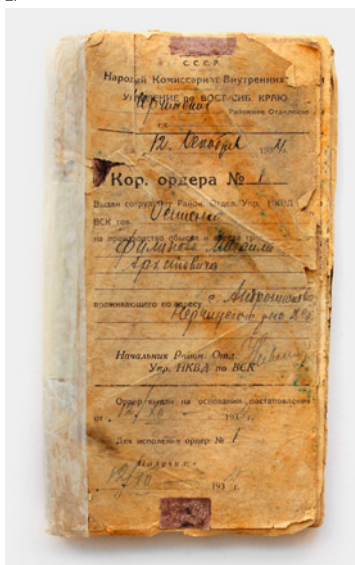 С.С.С.Р.
Народный Комиссариат Внутренних
Управление по ВОСТ-СИБ. КРАЮ
Районное Отделение
12. Декабря 193
Кор. ордера № 1
Выдан сотруд. Район. Отдел. Упр. НКВД
ВСК тов.
на производство обыска и ареста гр.
Филипова Михаила
Архиповича
проживающего по адресу с. Андронниково
Нерчинского р-на ВСК
Начальник Район. Отд.
Упр. НКВД по ВСК
Ордер выдан на основании постановления
от 12/XII 193 г.
Для исполения ордер № 1
Получил
12/XII 193 г.